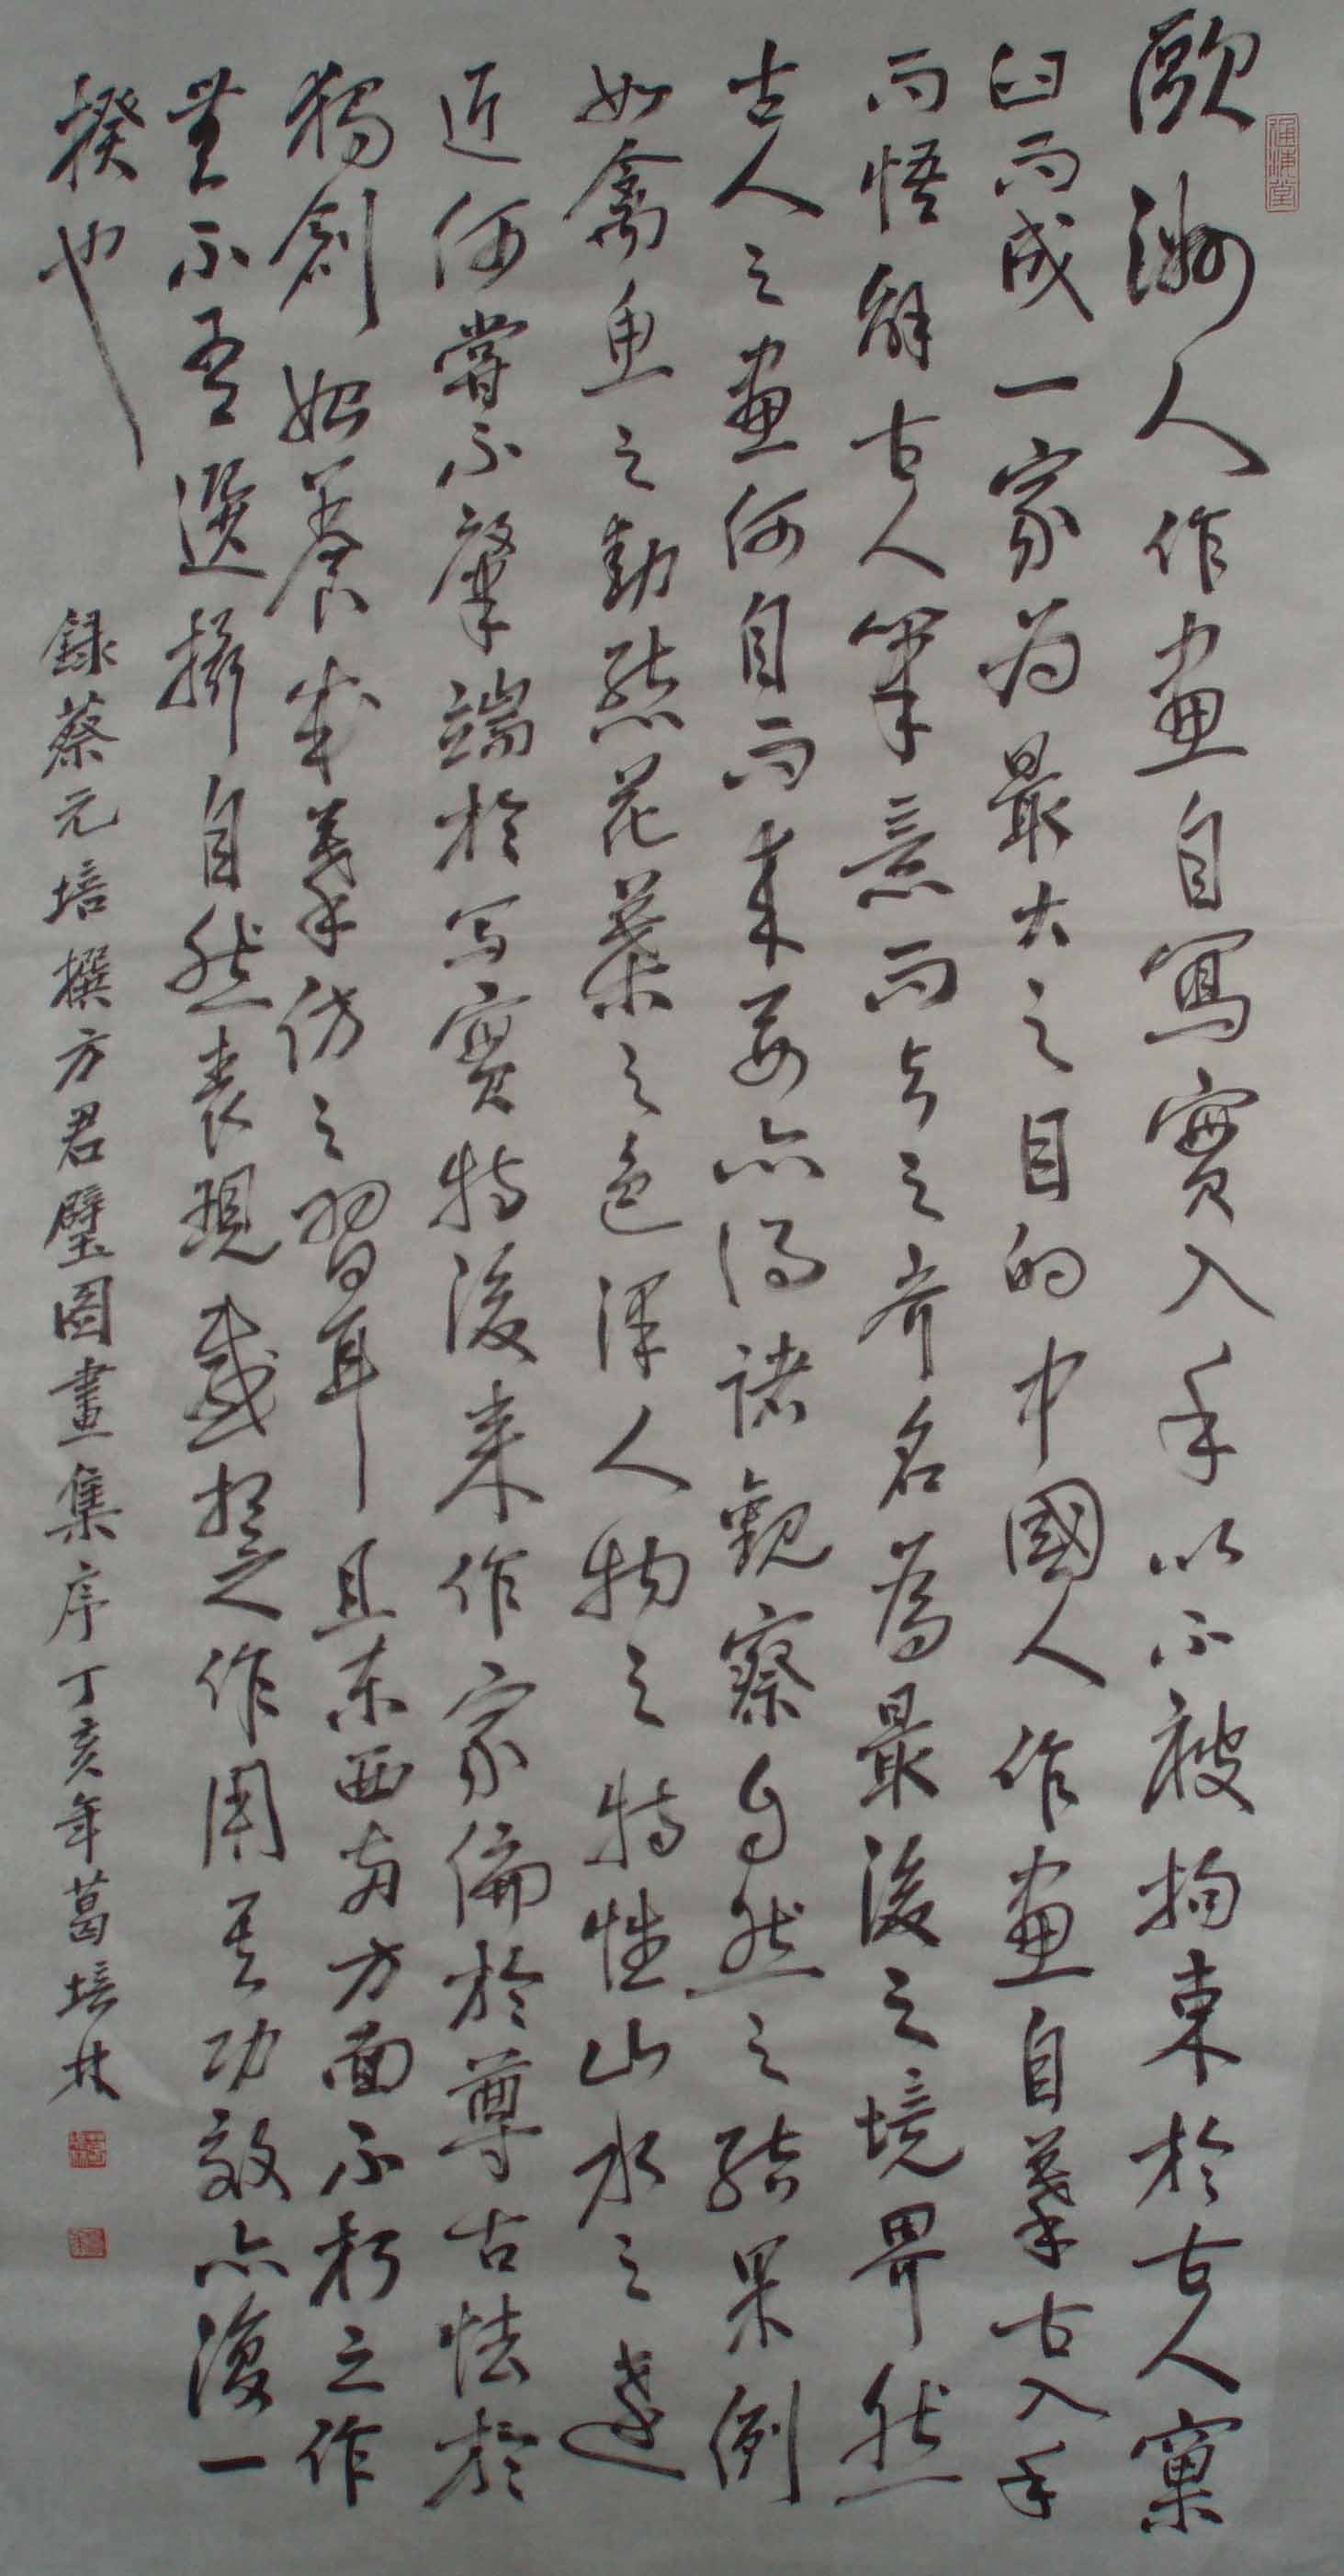 歐洲人作畫自寫實入手以不被拘束於古人窠
臼而成一家为最大之目的中國人作畫自摹古入手
而悟解古人筆意而与之齐名為最後之境界然
古人之畫何自而来要亦得諸觀察自然之結果例
如禽魚之動態花葉之色泽人物之特性山水之遠
近何嘗不肇端於写實特後来作家偏於尊古怯於
獨創始養成摹仿之習耳且东西两方面不朽之作
無不吾選擇自然表現感想之作用其功效亦復一
揆也
録蔡元培撰方君璧圖畫集序丁亥年葛培林